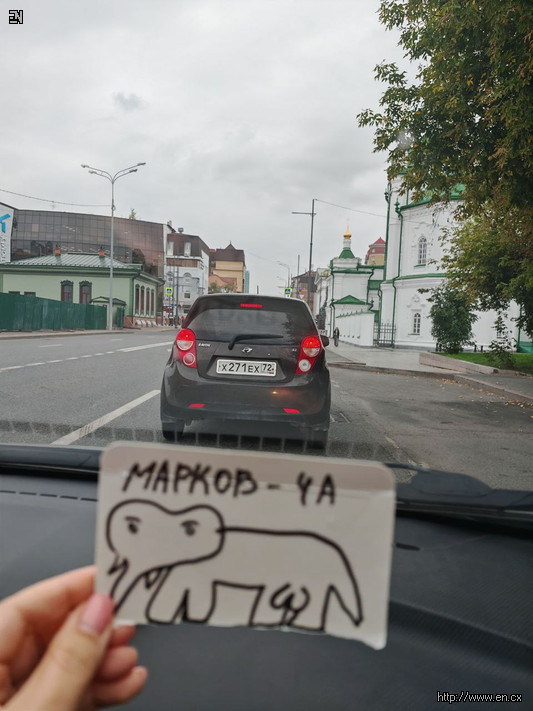 EN
Х271ЕХ 72
МАРКОВ - 4А
http://www.en.cx